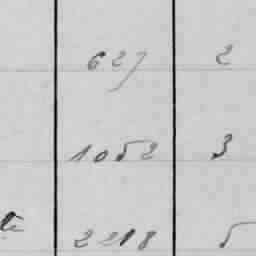 627 2
1052 3
te 2218 5